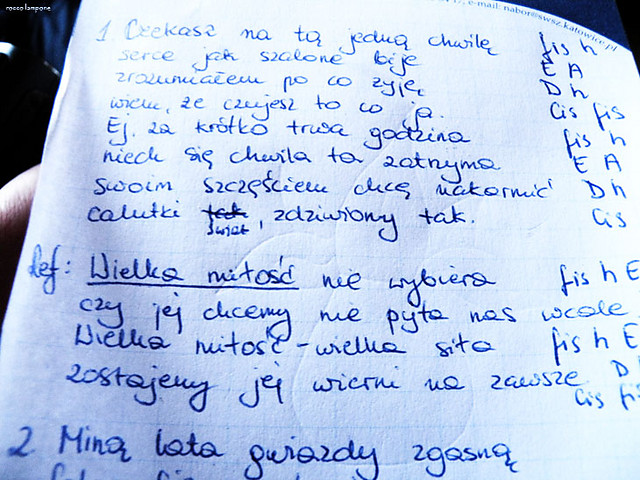 rocco lampone
e-mail: nabor@swsz.katowice.pl
1. Czekasz na tą jedną chwilę fis h
serce jak szalone bije E A
zrozumiałem po co żyję D h
wiem, że czujesz to co ja. Cis fis
Ej, za krótko trwa godzina fis h
niech się chwila ta zatrzyma E A
swoim szczęściem chcę nakarmić D h
calutki tak świat, zdziwiony tak. Cis
Ref: Wielka miłość nie wybiera fis h E
czy jej chcemy nie pyta nas wcale
Wielka miłość - wielka siła fis h E
zostajemy jej wierni na zawsze D
Cis fis
2. Miną lata gwiazdy zgasną